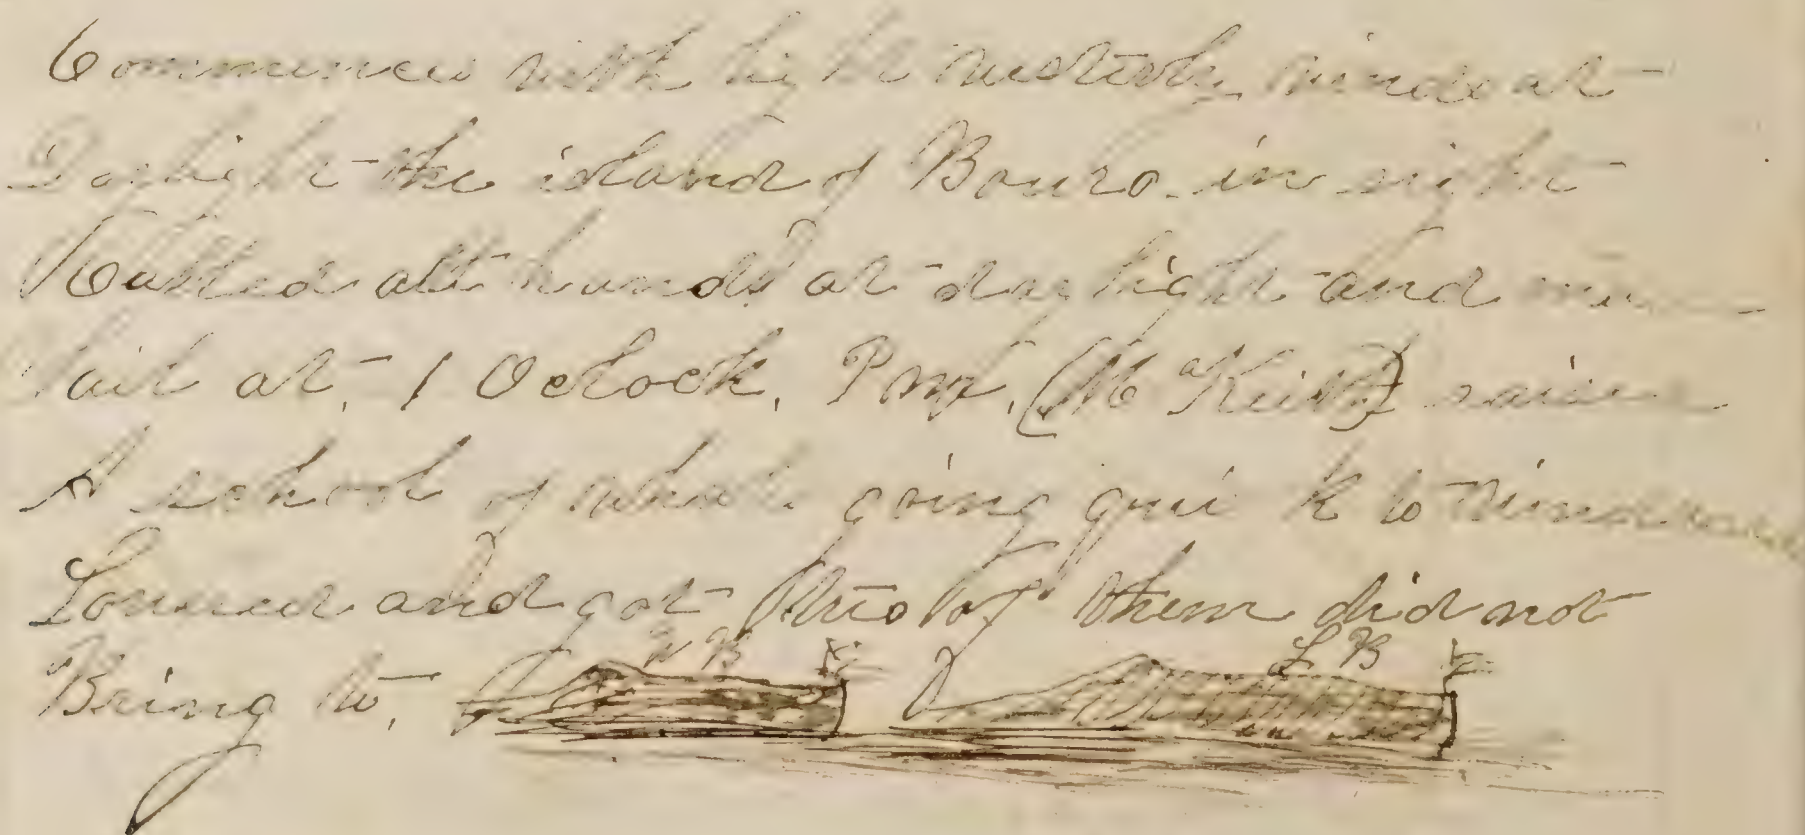 Commences with light westerly winds at
Daylight the island of Bouro. in sight
Called all hands at daylight and made
sail at, 1 Oclock, Pm, (M Keith) raised
A school of whale going quick to windward
Lowered and got two of them did not
Bring to,
W B
L B